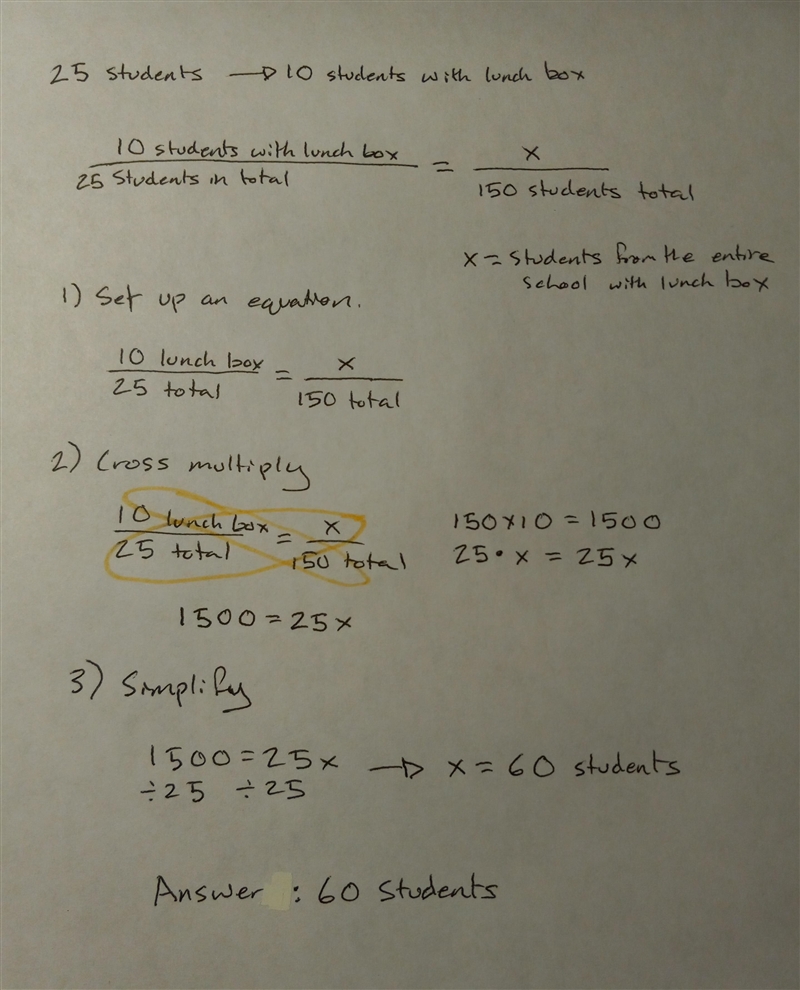 25 students → 10 students with lunch box
10 students with lunch box / 25 Students in total = x / 150 students total
x = Students from the entire
school with lunch box
1) Set up an equation.
10 lunch box / 25 total = x / 150 total
2) Cross multiply
10 lunch box / 25 total = x / 150 total
150 x 10 = 1500
25 • x = 25x
1500 = 25x
3) Simplify
1500 = 25x → x = 60 students
÷25 ÷25
Answer : 60 Students